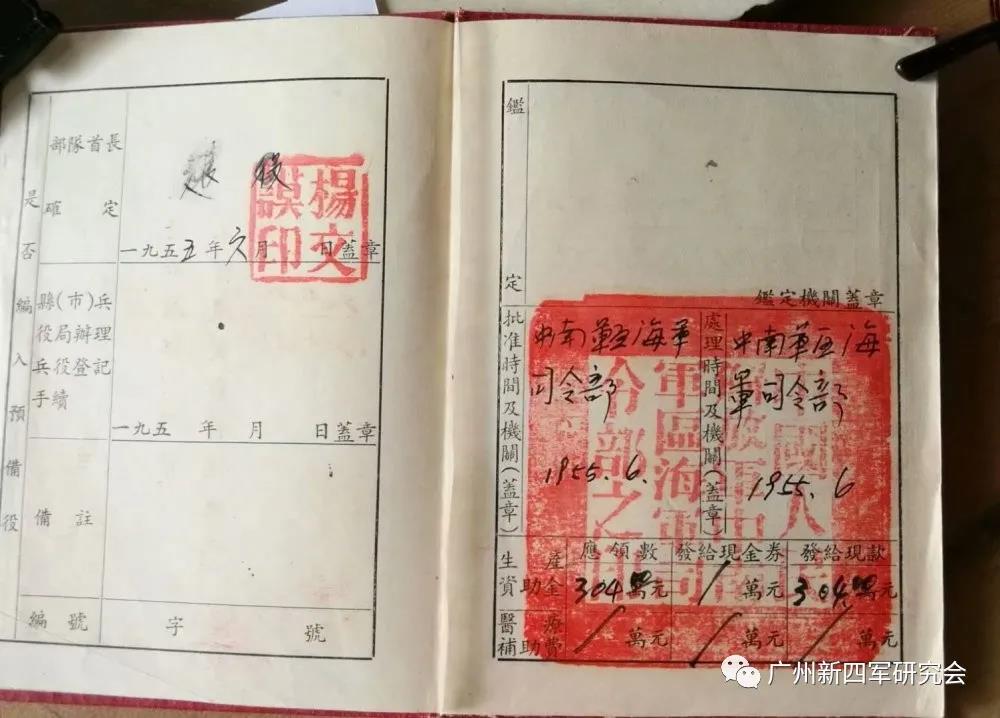 是否編入預備役
部隊首長
確定
一九五五年六月 日蓋章
楊文謨印
縣(市)兵
役局辦理
兵役登記
手續
一九五 年 月 日蓋章
備註
編號 字 號
鑑定
鑑定機關蓋章
批准時間及機關(蓋章)
中南軍区海軍
司令部
1955.6.
處理時間及機關(蓋章)
中南軍区海
軍司令部
1955.6
生產資助金
應領數
發給現金券
發給現款
304萬元
/萬元
304萬元
醫療補助費
/萬元
/萬元
/萬元
广州新四军研究会